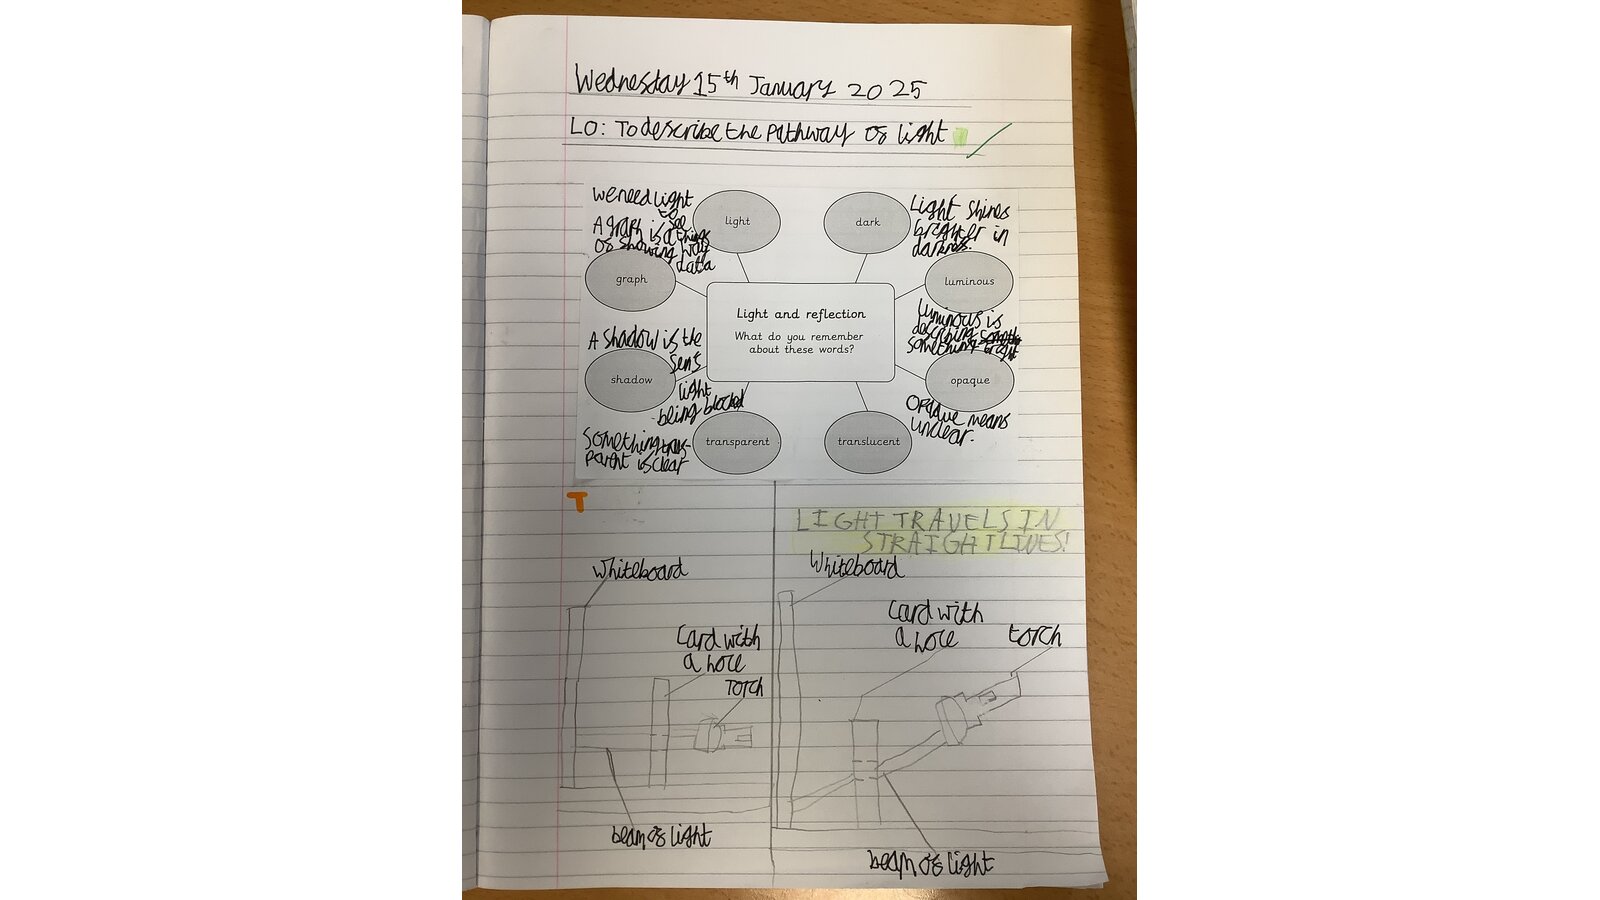 Wednesday 15th January 2025
LO: To describe the pathway of light
We need light
to
see
light
dark
Light shines
brighter in
darkness.
A graph is a
of showing
data
graph
luminous
Luminous is
describing
something bright
Light and reflection
What do you remember
about these words?
A shadow is the
light
being blocked
shadow
opaque
Opaque means
unclear.
Something trans-
parent is clear
transparent
translucent
T
LIGHT TRAVELS IN
STRAIGHT LINES!
Whiteboard
Card with
a hole
Torch
beam of light
Whiteboard
Card with
a hole
torch
beam of light